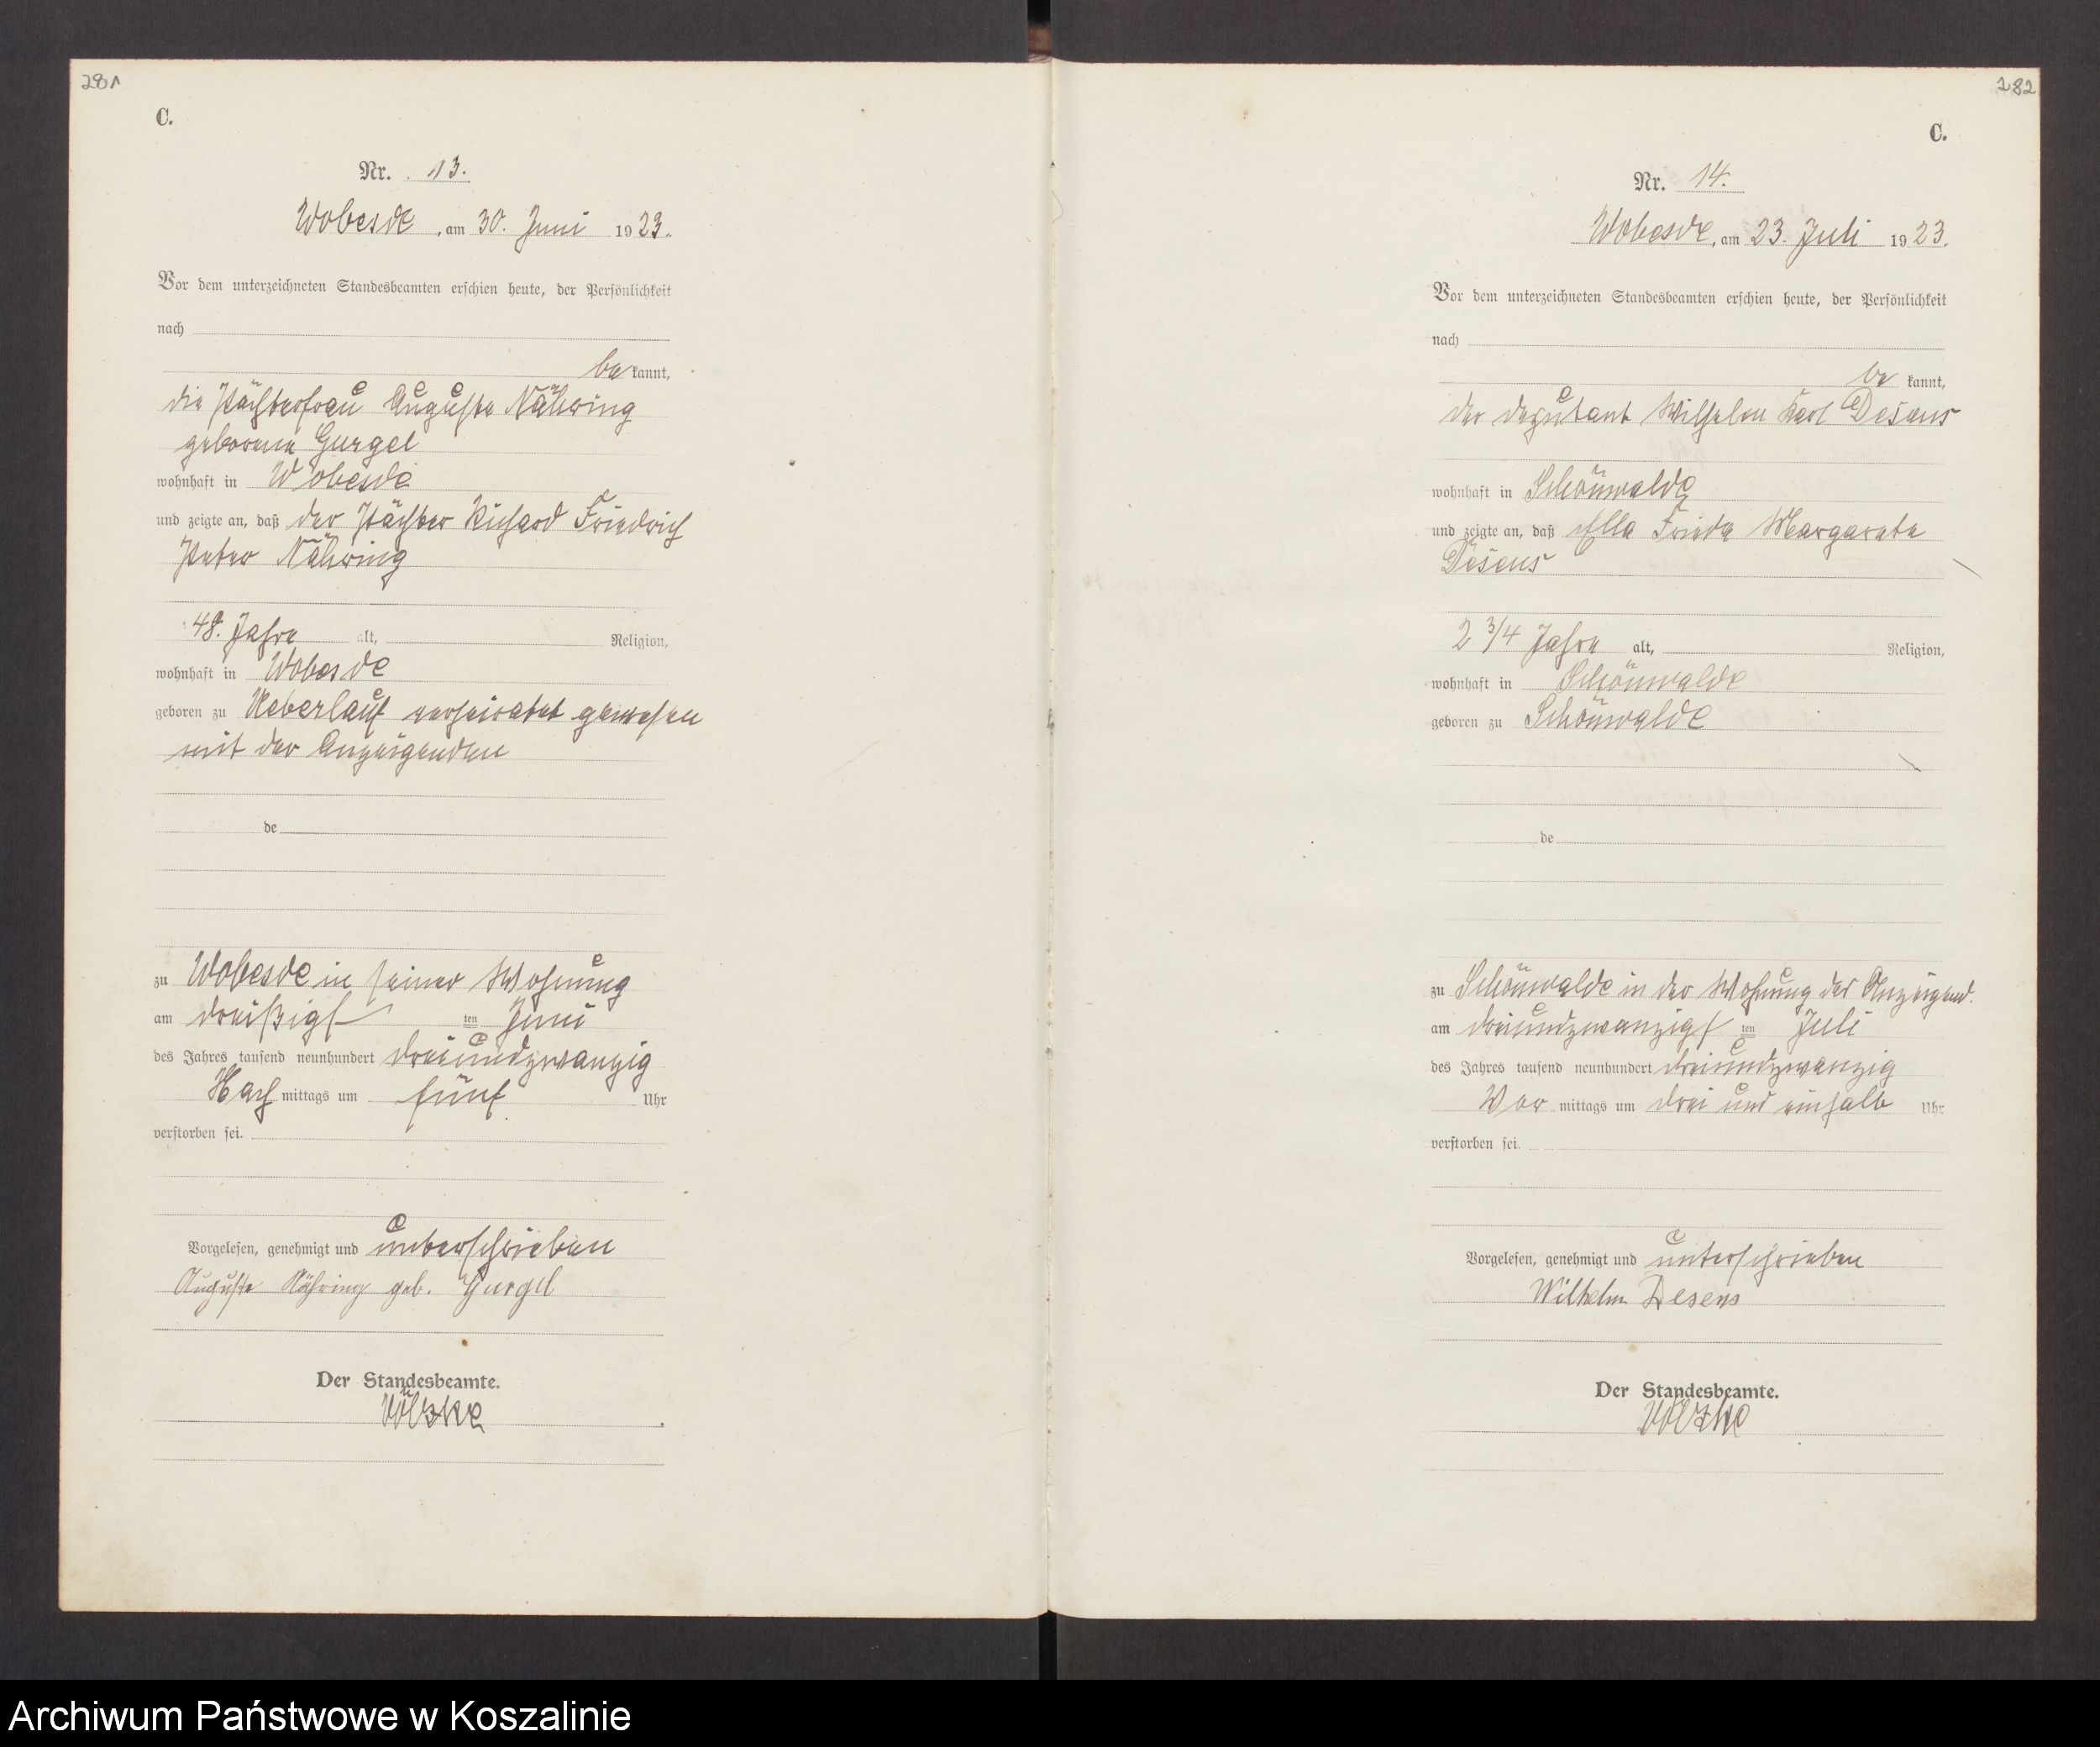 281
C.
Nr. 13.
Wobesde, am 30. Juni 1923.
Vor dem unterzeichneten Standesbeamten erschien heute, der Persönlichkeit
nach
be kannt,
die Pächterfrau Auguste Nähring
geborene Gurgel
wohnhaft in Wobesde
und zeigte an, daß der Pächter Richard Friedrich
Peter Nähring
48. Jahre alt, Religion,
wohnhaft in Wobesde
geboren zu Ueberlauf verheiratet gewesen
mit der Anzeigenden
de
zu Wobesde in seiner Wohnung
am dreißigs ten Juni
des Jahres tausend neunhundert dreiundzwanzig
Nach mittags um fünf Uhr
verstorben sei.
Vorgelesen, genehmigt und unterschrieben
Auguste Nähring geb. Gurgel
Der Standesbeamte.
Völzke
282
C.
Nr. 14.
Wobesde, am 23. Juli 1923.
Vor dem unterzeichneten Standesbeamten erschien heute, der Persönlichkeit
nach
be kannt,
der Deputant Wilhelm Karl Desens
wohnhaft in Schönwalde
und zeigte an, daß Ella Frieda Margarete
Desens
2 3/4 Jahre alt, Religion,
wohnhaft in Schönwalde
geboren zu Schönwalde
de
zu Schönwalde in der Wohnung des Anzeigend.
am dreiundzwanzigs ten Juli
des Jahres tausend neunhundert dreiundzwanzig
Vor mittags um drei und einhalb Uhr
verstorben sei.
Vorgelesen, genehmigt und unterschrieben
Wilhelm Desens
Der Standesbeamte.
Völzke
Archiwum Państwowe w Koszalinie